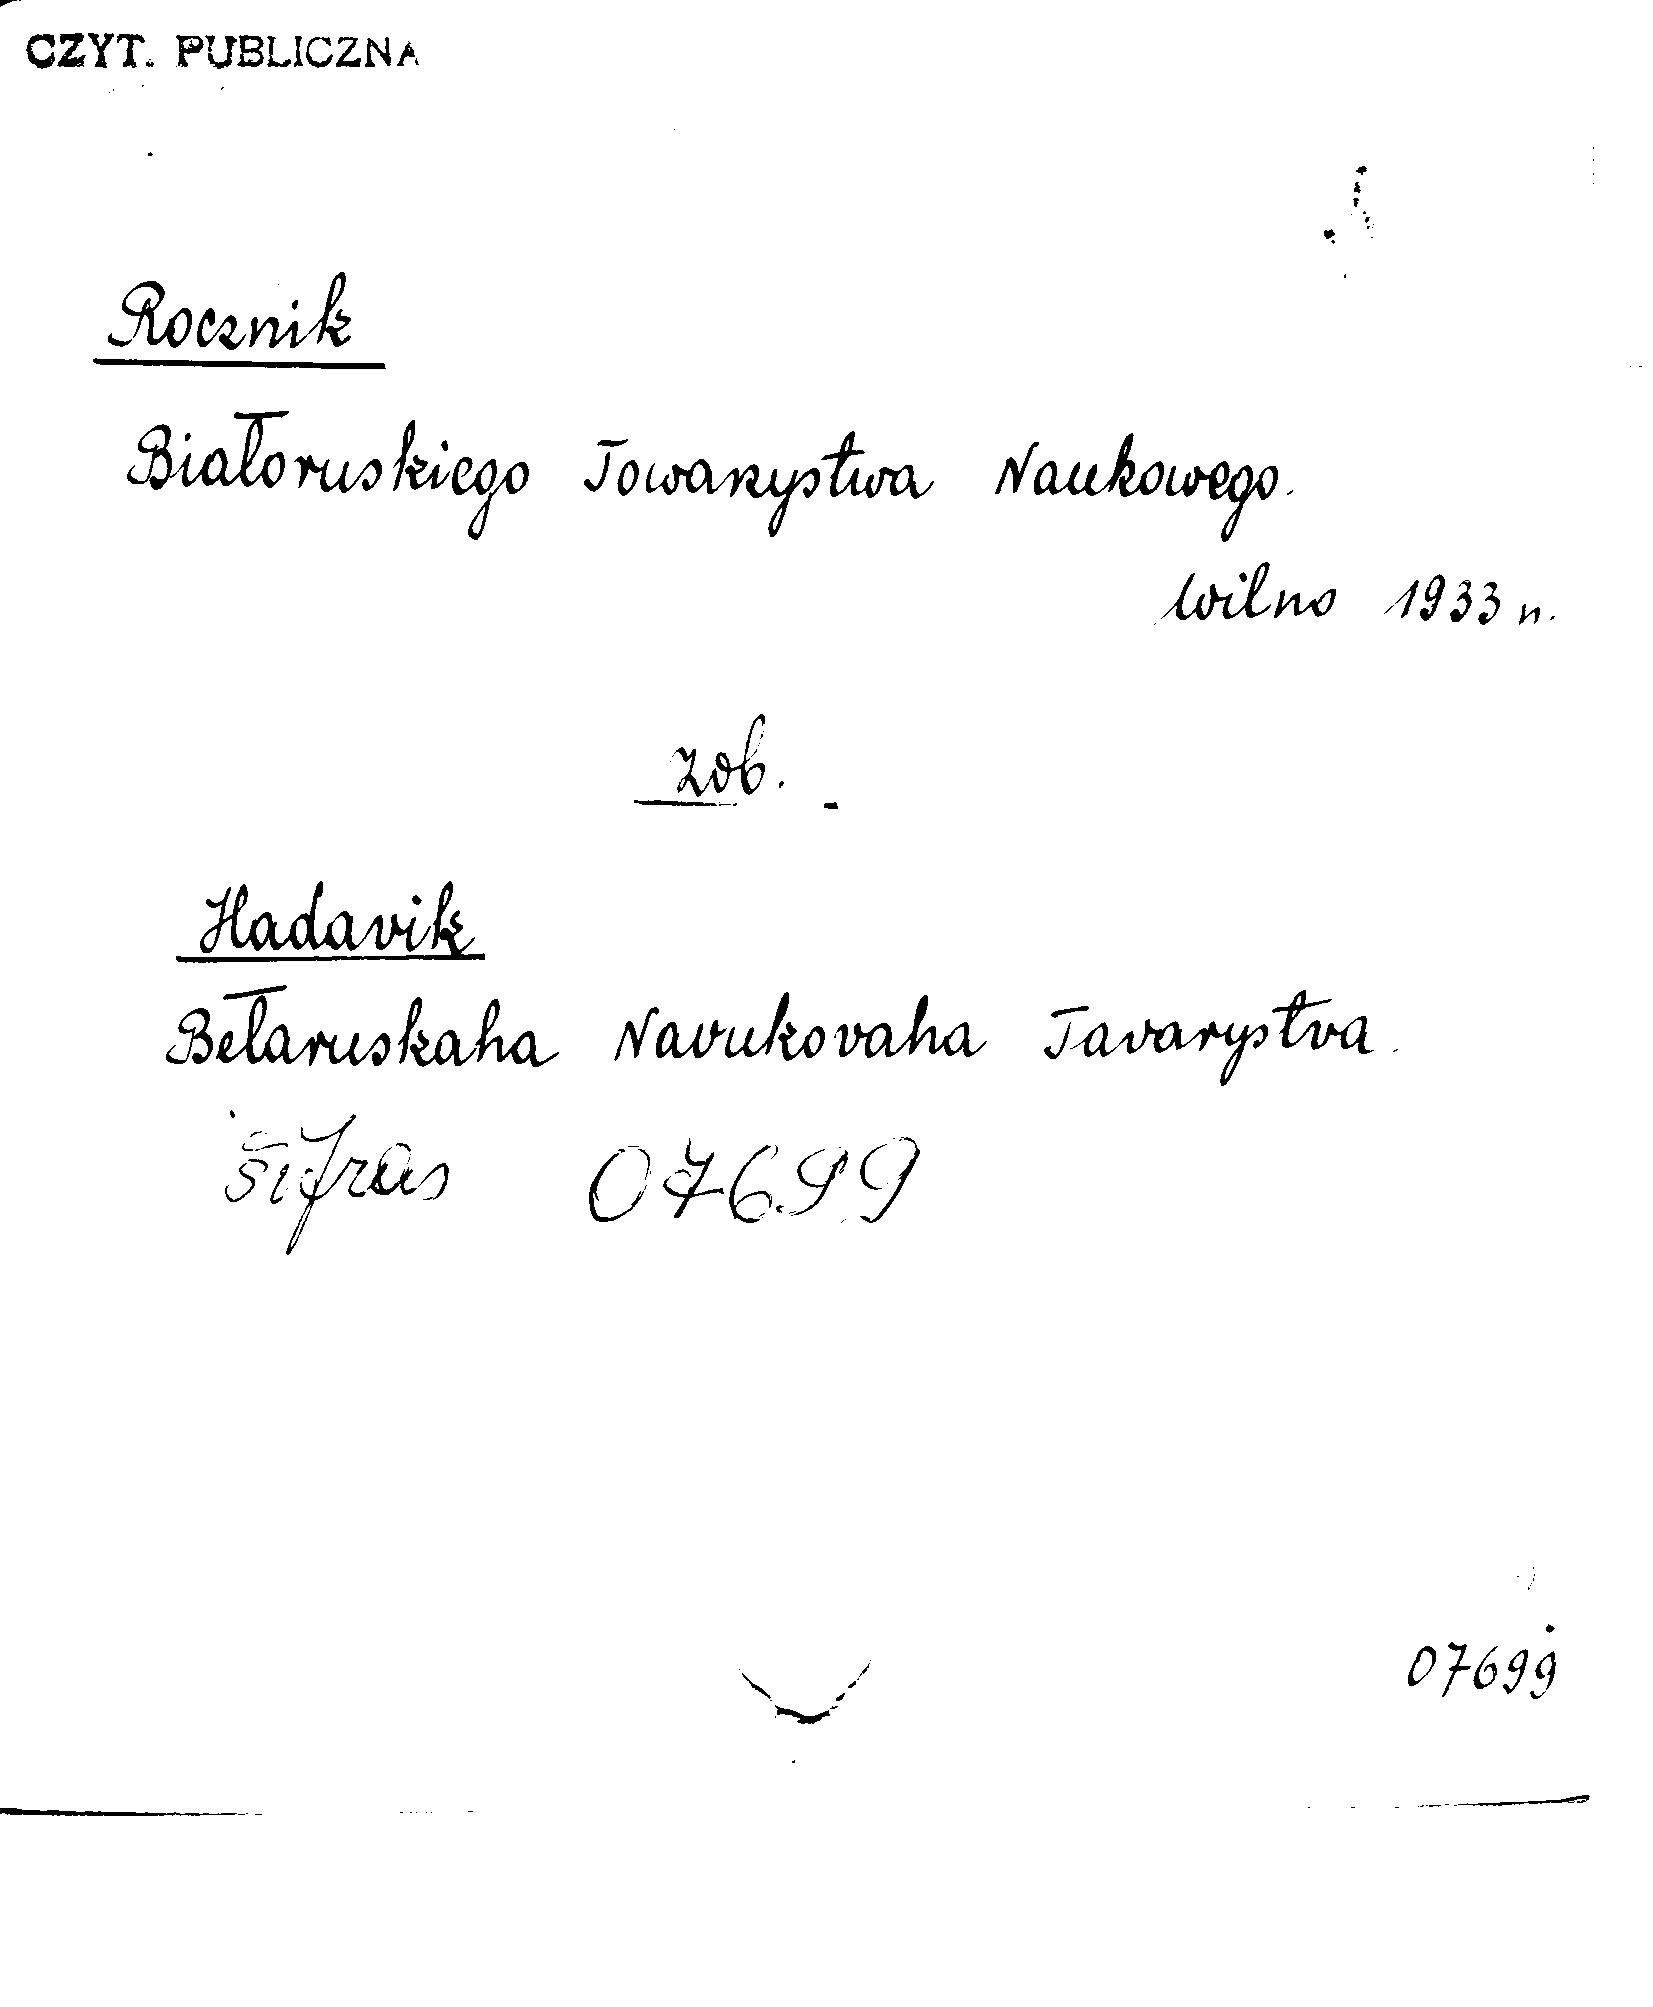 CZYT. PUBLICZNA
Rocznik
Białoruskiego Towarzystwa Naukowego.
Wilno 1933 r.
zob.
Hadavik
Bełaruskaha Navukovaha Tavarystva.
šifras 07699
07699